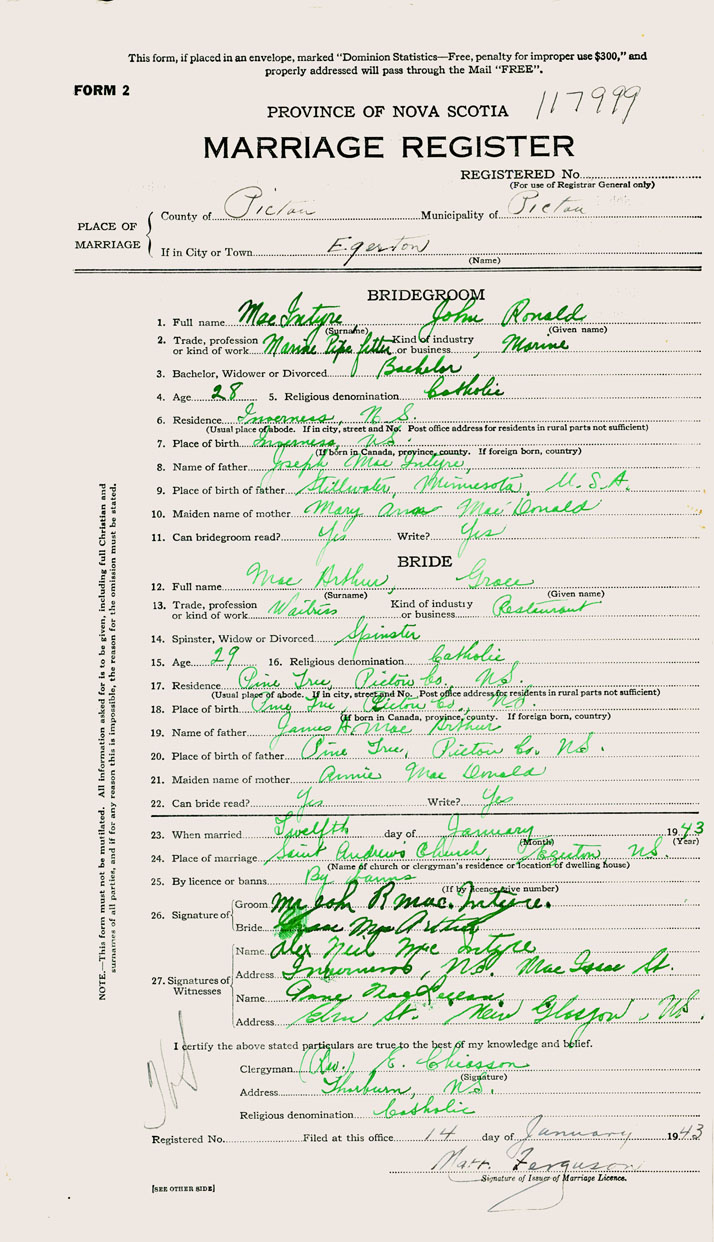 This form, if placed in an envelope, marked "Dominion Statistics—Free, penalty for improper use $300," and
properly addressed will pass through the Mail "FREE".
FORM 2
PROVINCE OF NOVA SCOTIA 117999
MARRIAGE REGISTER
REGISTERED No.
(For use of Registrar General only)
PLACE OF MARRIAGE
County of Pictou Municipality of Pictou
If in City or Town Egerton
(Name)
BRIDEGROOM
1. Full name MacIntyre John Ronald
(Surname) (Given name)
2. Trade, profession or kind of work Marine Pipe fitter Kind of industry or business Marine
3. Bachelor, Widower or Divorced Bachelor
4. Age 28 5. Religious denomination Catholic
6. Residence Inverness, N.S.
(Usual place of abode. If in city, street and No. Post office address for residents in rural parts not sufficient)
7. Place of birth Inverness, N.S.
(If born in Canada, province, county. If foreign born, country)
8. Name of father Joseph Mac Intyre,
9. Place of birth of father Stillwater, Minnesota, U.S.A.
10. Maiden name of mother Mary Ann Mac Donald
11. Can bridegroom read? Yes Write? Yes
BRIDE
12. Full name Mac Arthur, Grace
(Surname) (Given name)
13. Trade, profession or kind of work Waitress Kind of industry or business Restaurant
14. Spinster, Widow or Divorced Spinster
15. Age 29 16. Religious denomination Catholic
17. Residence Pine Tree, Pictou Co. N.S.
(Usual place of abode. If in city, street and No. Post office address for residents in rural parts not sufficient)
18. Place of birth Pine Tree, Pictou Co., N.S.
(If born in Canada, province, county. If foreign born, country)
19. Name of father James A. Mac Arthur
20. Place of birth of father Pine Tree, Pictou Co. N.S.
21. Maiden name of mother Annie Mac Donald
22. Can bride read? Yes Write? Yes
23. When married Twelfth day of January 1943
(Month) (Year)
24. Place of marriage Saint Andrews Church, Egerton, N.S.
(Name of church or clergyman's residence or location of dwelling house)
25. By licence or banns By banns
(If by licence give number)
26. Signature of
Groom Mr John R mac. Intyre.
Bride Grace Mac Arthur
27. Signatures of Witnesses
Name Alex Neil Mac Intyre
Address Inverness, N.S. Mac Isaac St.
Name Anne
Address Elm St. New Glasgow, N.S.
I certify the above stated particulars are true to the best of my knowledge and belief.
Clergyman (Rev.) E. Chiasson
(Signature)
Address Thorburn, N.S.
Religious denomination Catholic
Registered No. Filed at this office 14 day of January 1943
Ferguson
Signature of Issuer of Marriage Licence.
[SEE OTHER SIDE]
NOTE.—This form must not be mutilated. All information asked for is to be given, including full Christian and
surnames of all parties, and if for any reason this is impossible, the reason for the omission must be stated.